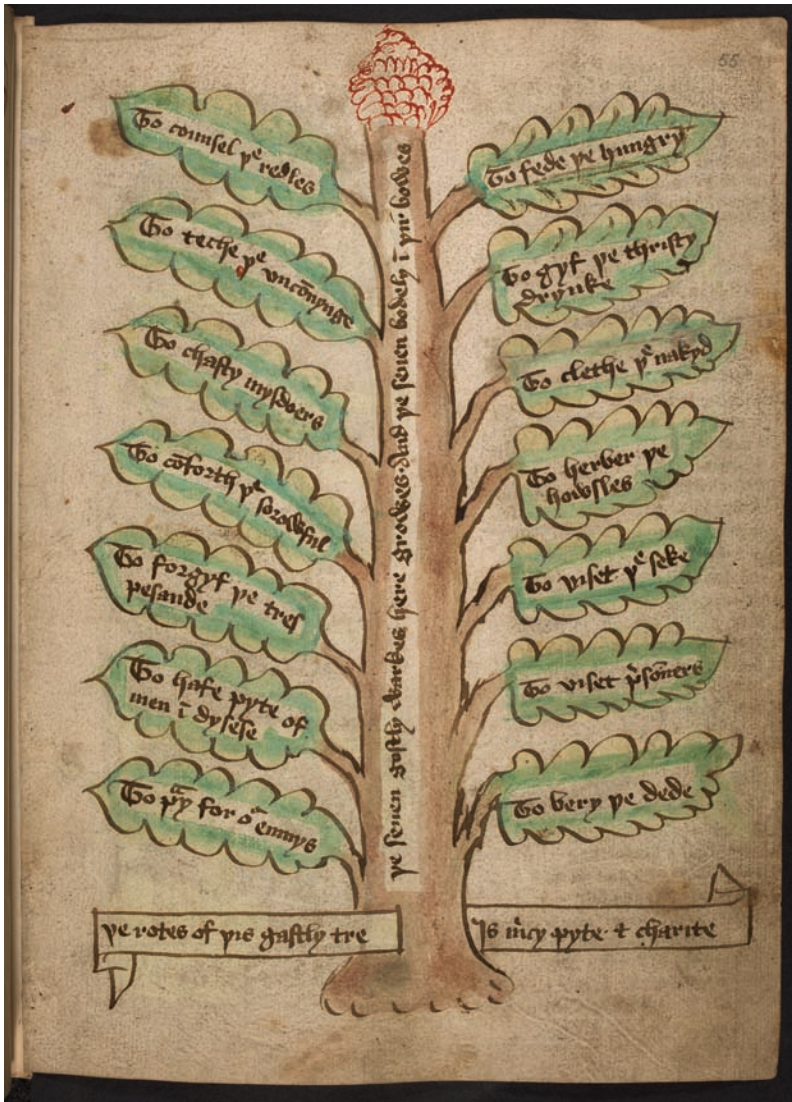 55
To counsel þe redles
To teche þe vnco̅nynge
To chasty mysdoers
To co̅forth þe sorowful
To forgyf þe tres
pesande
To hafe pyte of
men i̅ dysese
To pͣy for oͬ enmys
þe seuen gostly warkes here growes · And þe seuen bodely i̅ þir bowes
To fede þe hungry
To gyf þe thristy
drynke
To clethe þe nakyd
To herber þe
howsles
To viset þe seke
To viset p̓so̅ners
To bery þe dede
þe rotes of þis gastly tre
Is m̓cy pyte · & charite